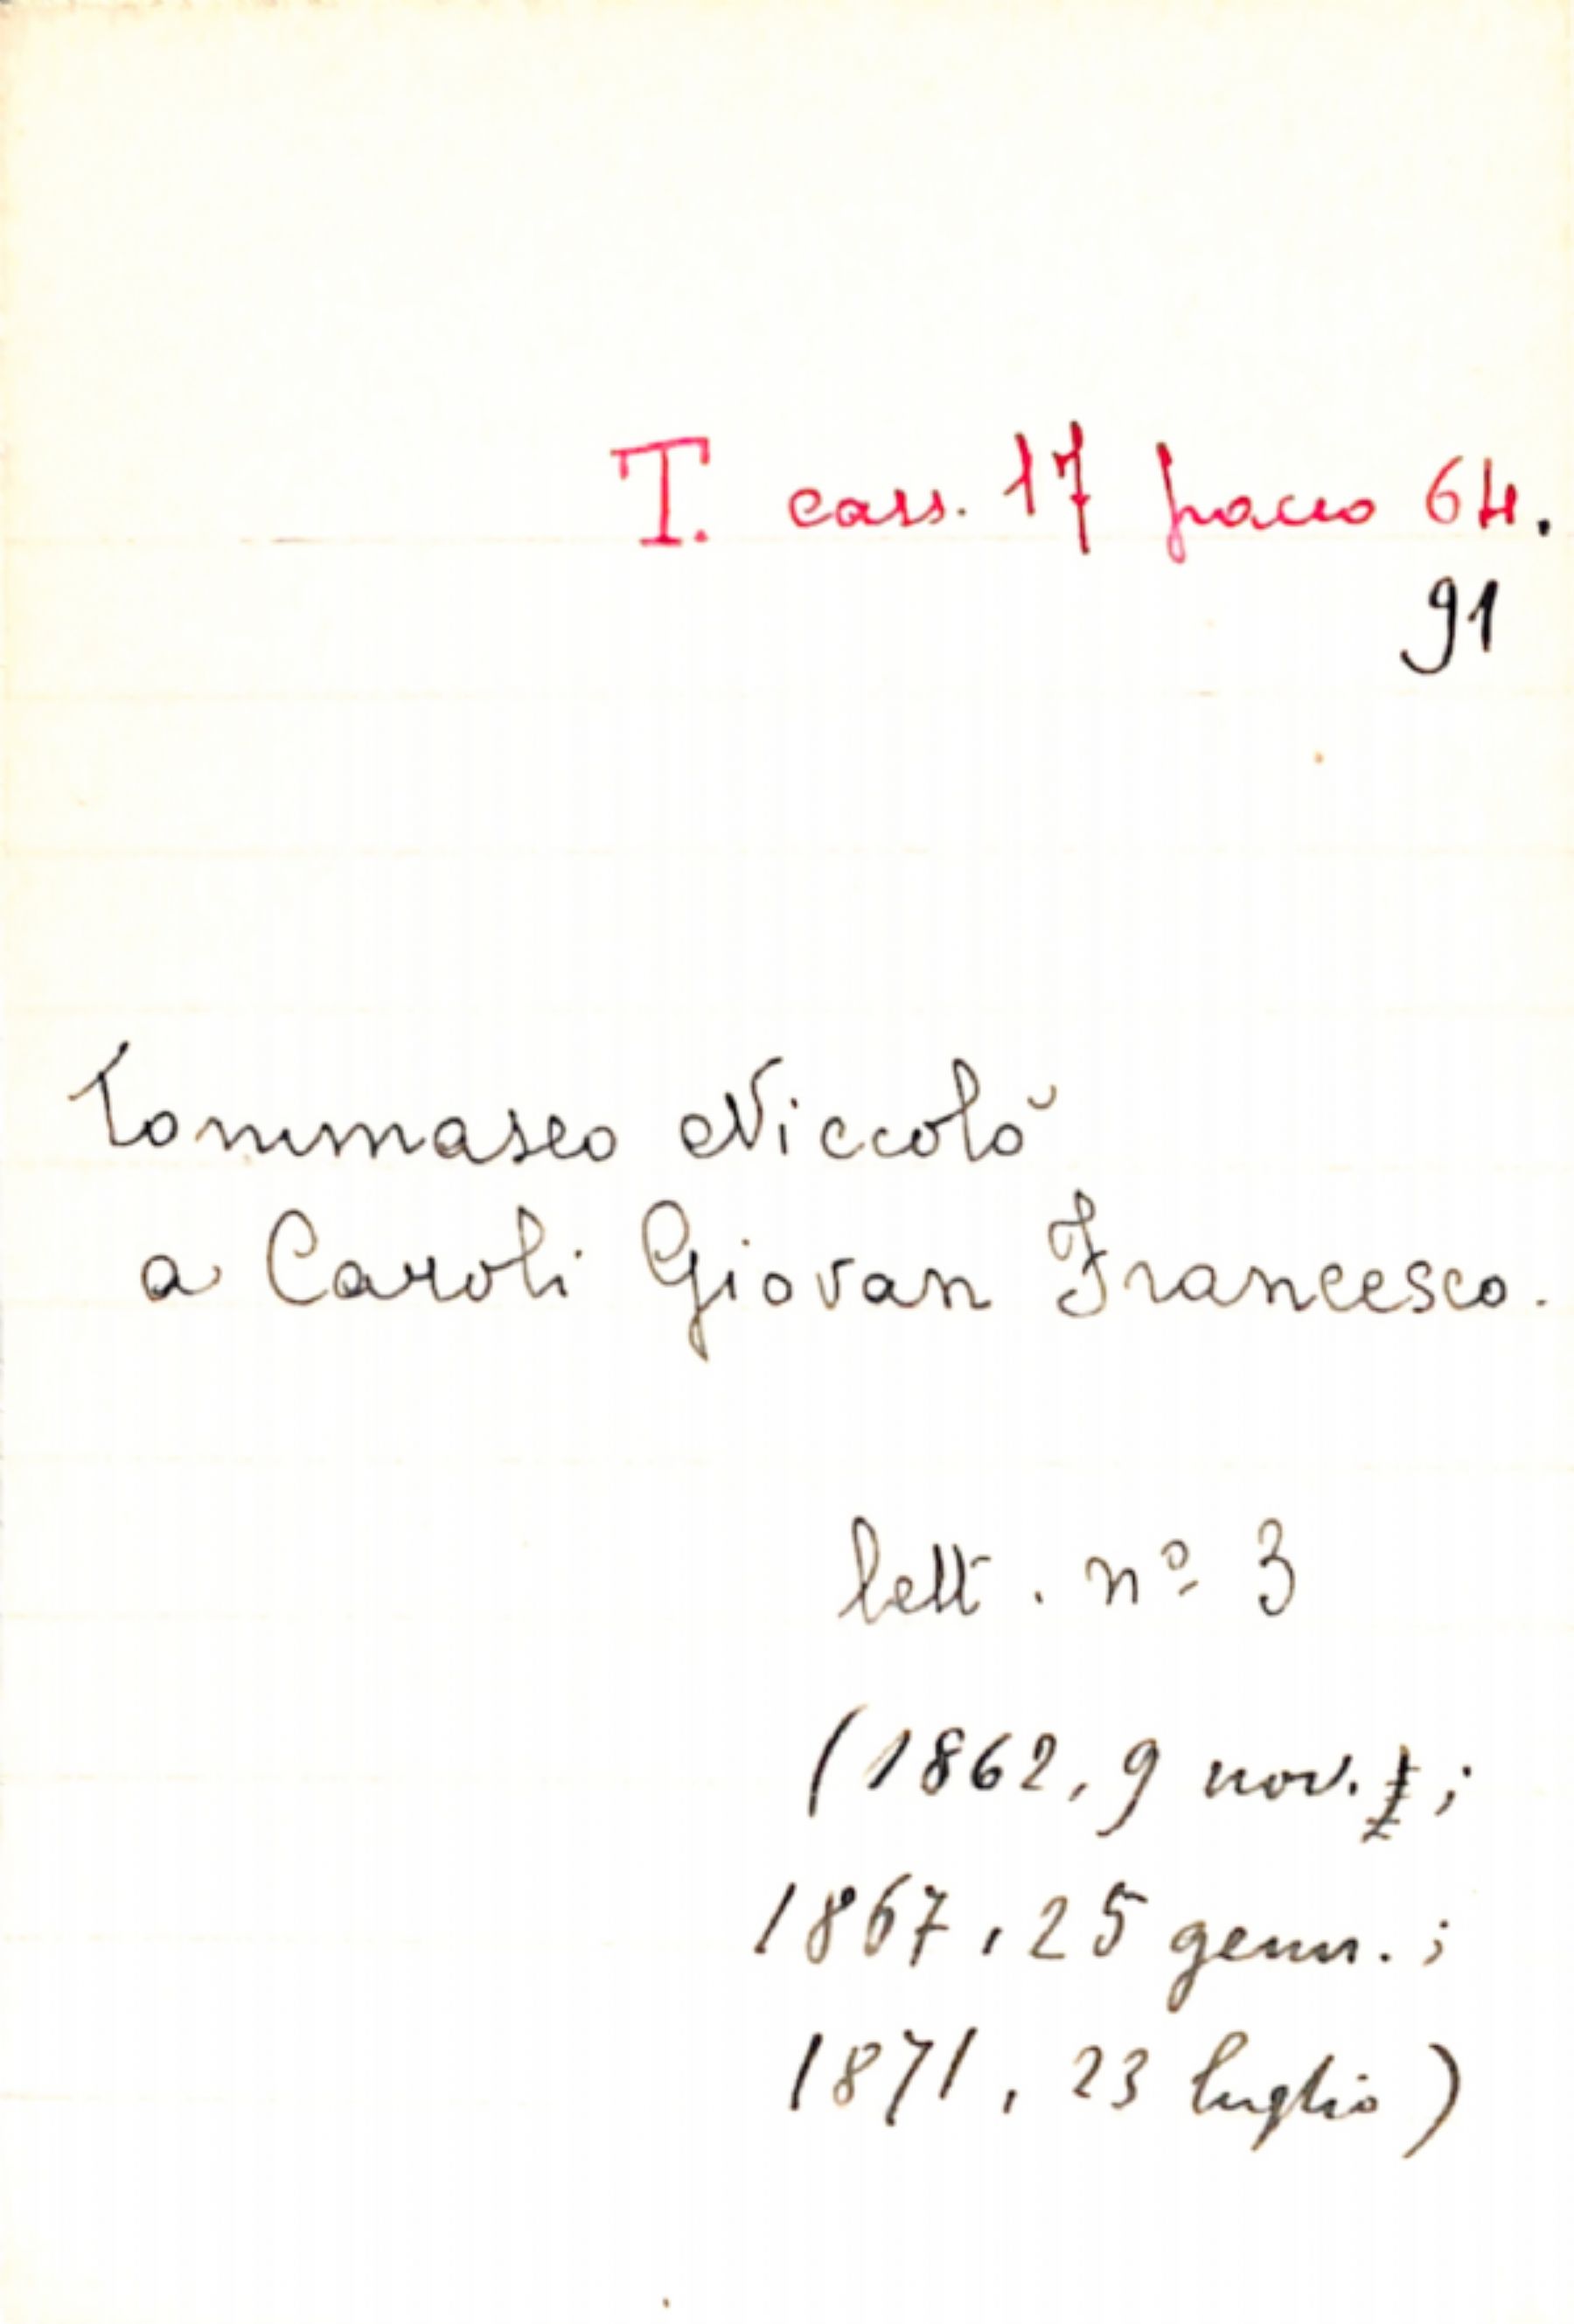 T. cass. 17 pacco 64.
91
Tommaseo Niccolò
a Caroli Giovan Francesco.
lett. nº 3
(1862, 9 nov. ;
1867, 25 genn. ;
1871, 23 luglio)